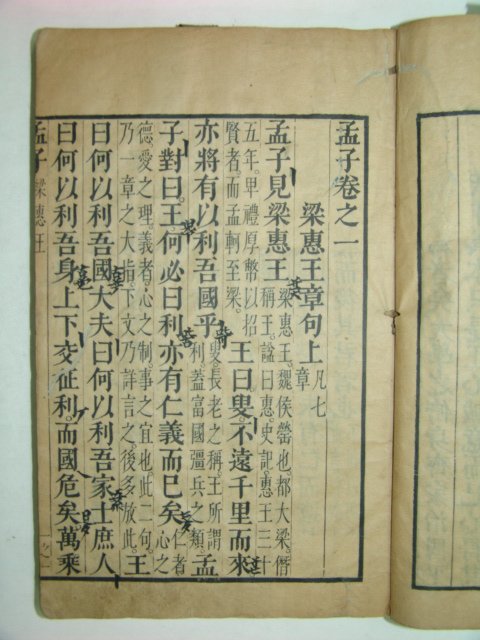 孟子卷之一
梁惠王章句上 凡七章
孟子見梁惠王 梁惠王。魏侯罃也。都大梁。僭
稱王。諡曰惠。史記。惠王三十
五年。卑禮厚幣以招
賢者。而孟軻至梁。
王曰叟。不遠千里而來
亦將有以利吾國乎 叟。長老之稱。王所謂
利。蓋富國彊兵之類。
孟
子對曰。王。何必曰利。亦有仁義而已矣 仁者
心之
德愛之理。義者。心之制。事之宜也。此二句。
乃一章之大指。下文乃詳言之。後多放此。
王
曰何以利吾國。大夫曰何以利吾家。士庶人
曰何以利吾身。上下交征利。而國危矣。萬乘
孟子 梁惠王